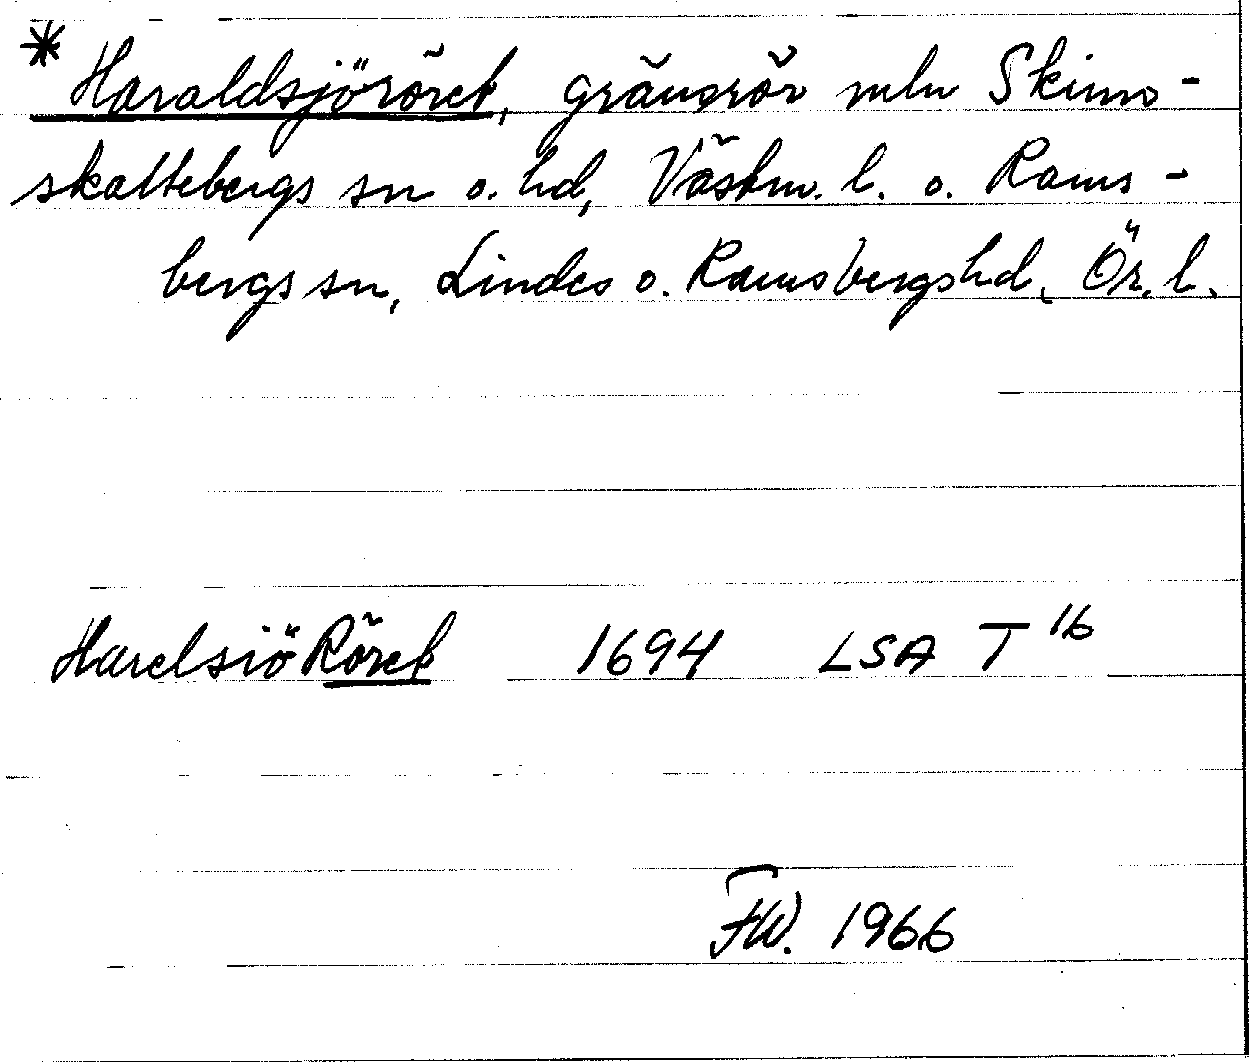 * Haraldsjöröret, gränsrör mln Skinn-
skattebergs sn o. hd, Västm. l. o. Rams-
bergs sn, Lindes o. Ramsbergs hd, Ör. l.
HarelsiöRöret 1694 LSA T 16
FW. 1966